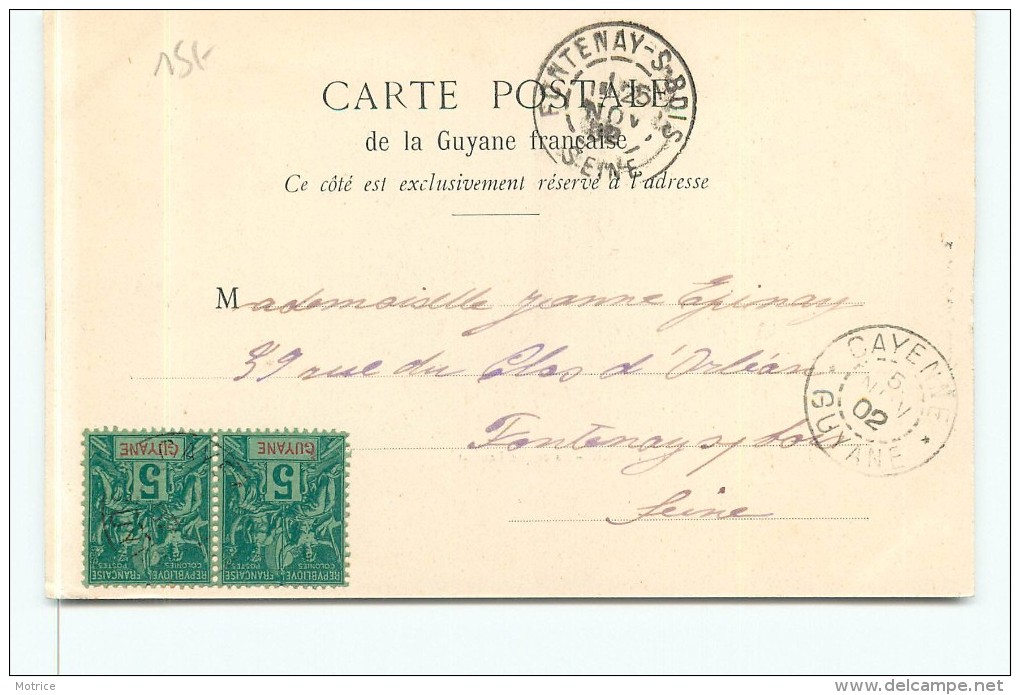 15f
CARTE POSTALE
de la Guyane française
Ce côté est exclusivement réservé à l'adresse
FONTENAY-S-BOIS
25
NOV
02
SEINE
Mademoiselle Jeanne Epinay
39 rue du Clos d'Orléans
Fontenay s/ Bois
Seine
CAYENNE
5
NOV
02
GUYANE
GUYANE GUYANE
5 5
COLONIES POSTES COLONIES POSTES
REPUBLIQUE FRANÇAISE REPUBLIQUE FRANÇAISE
Motrice
delcampe.net